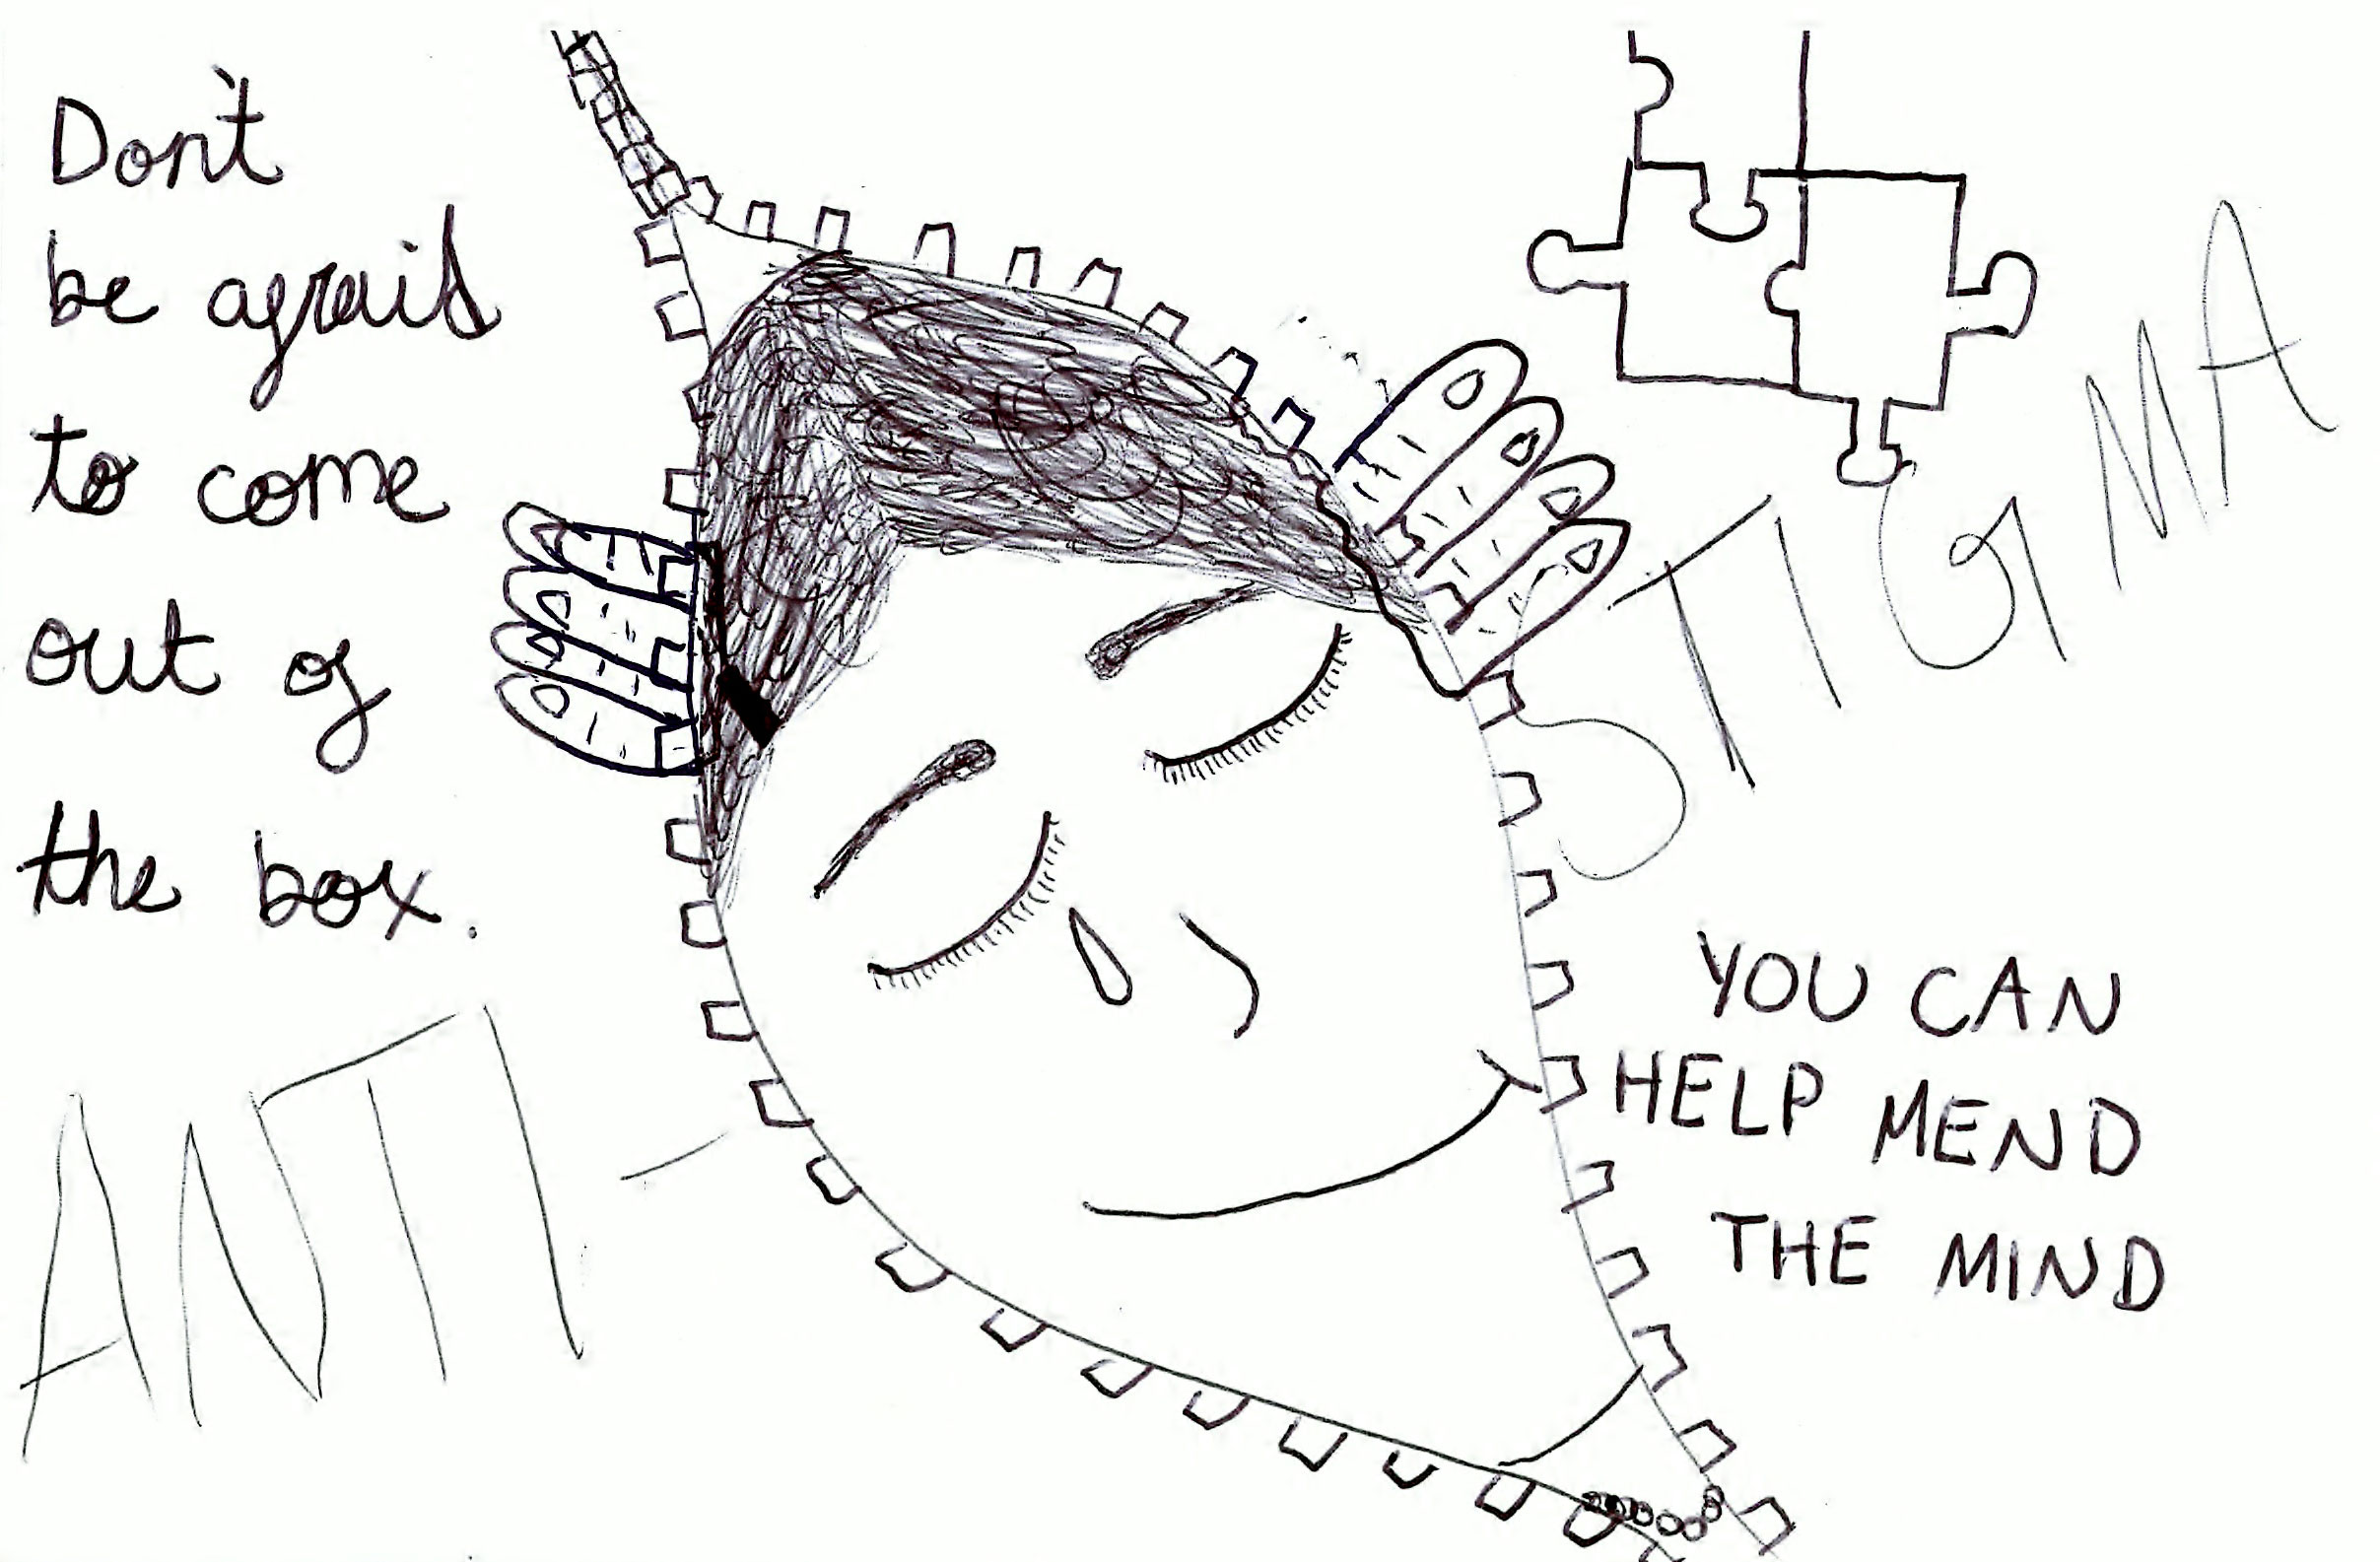 Don't
be afraid
to come
out of
the box.
ANTI-
STIGMA
YOU CAN
HELP MEND
THE MIND